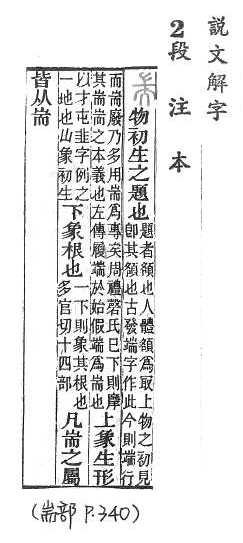 説文解字
2段注本
物初生之題也
題者額也人體額爲冣上物之初見
即其額也古發端字作此今則端行
而耑廢乃多用耑爲專矣周禮磬氏已下則摩
其耑耑之本義也左傳履端於始假端爲耑也
上象生形
以才屯韭字例之
一地也山象初生
下象根也
一下則象其根也
多官切十四部
凡耑之屬
皆从耑
(耑部 P.340)